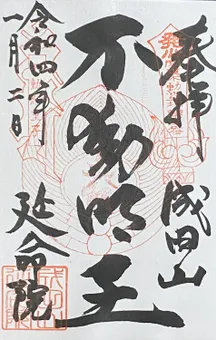 奉拝
成田山
不動明王
延命院
令和四年
一月二日